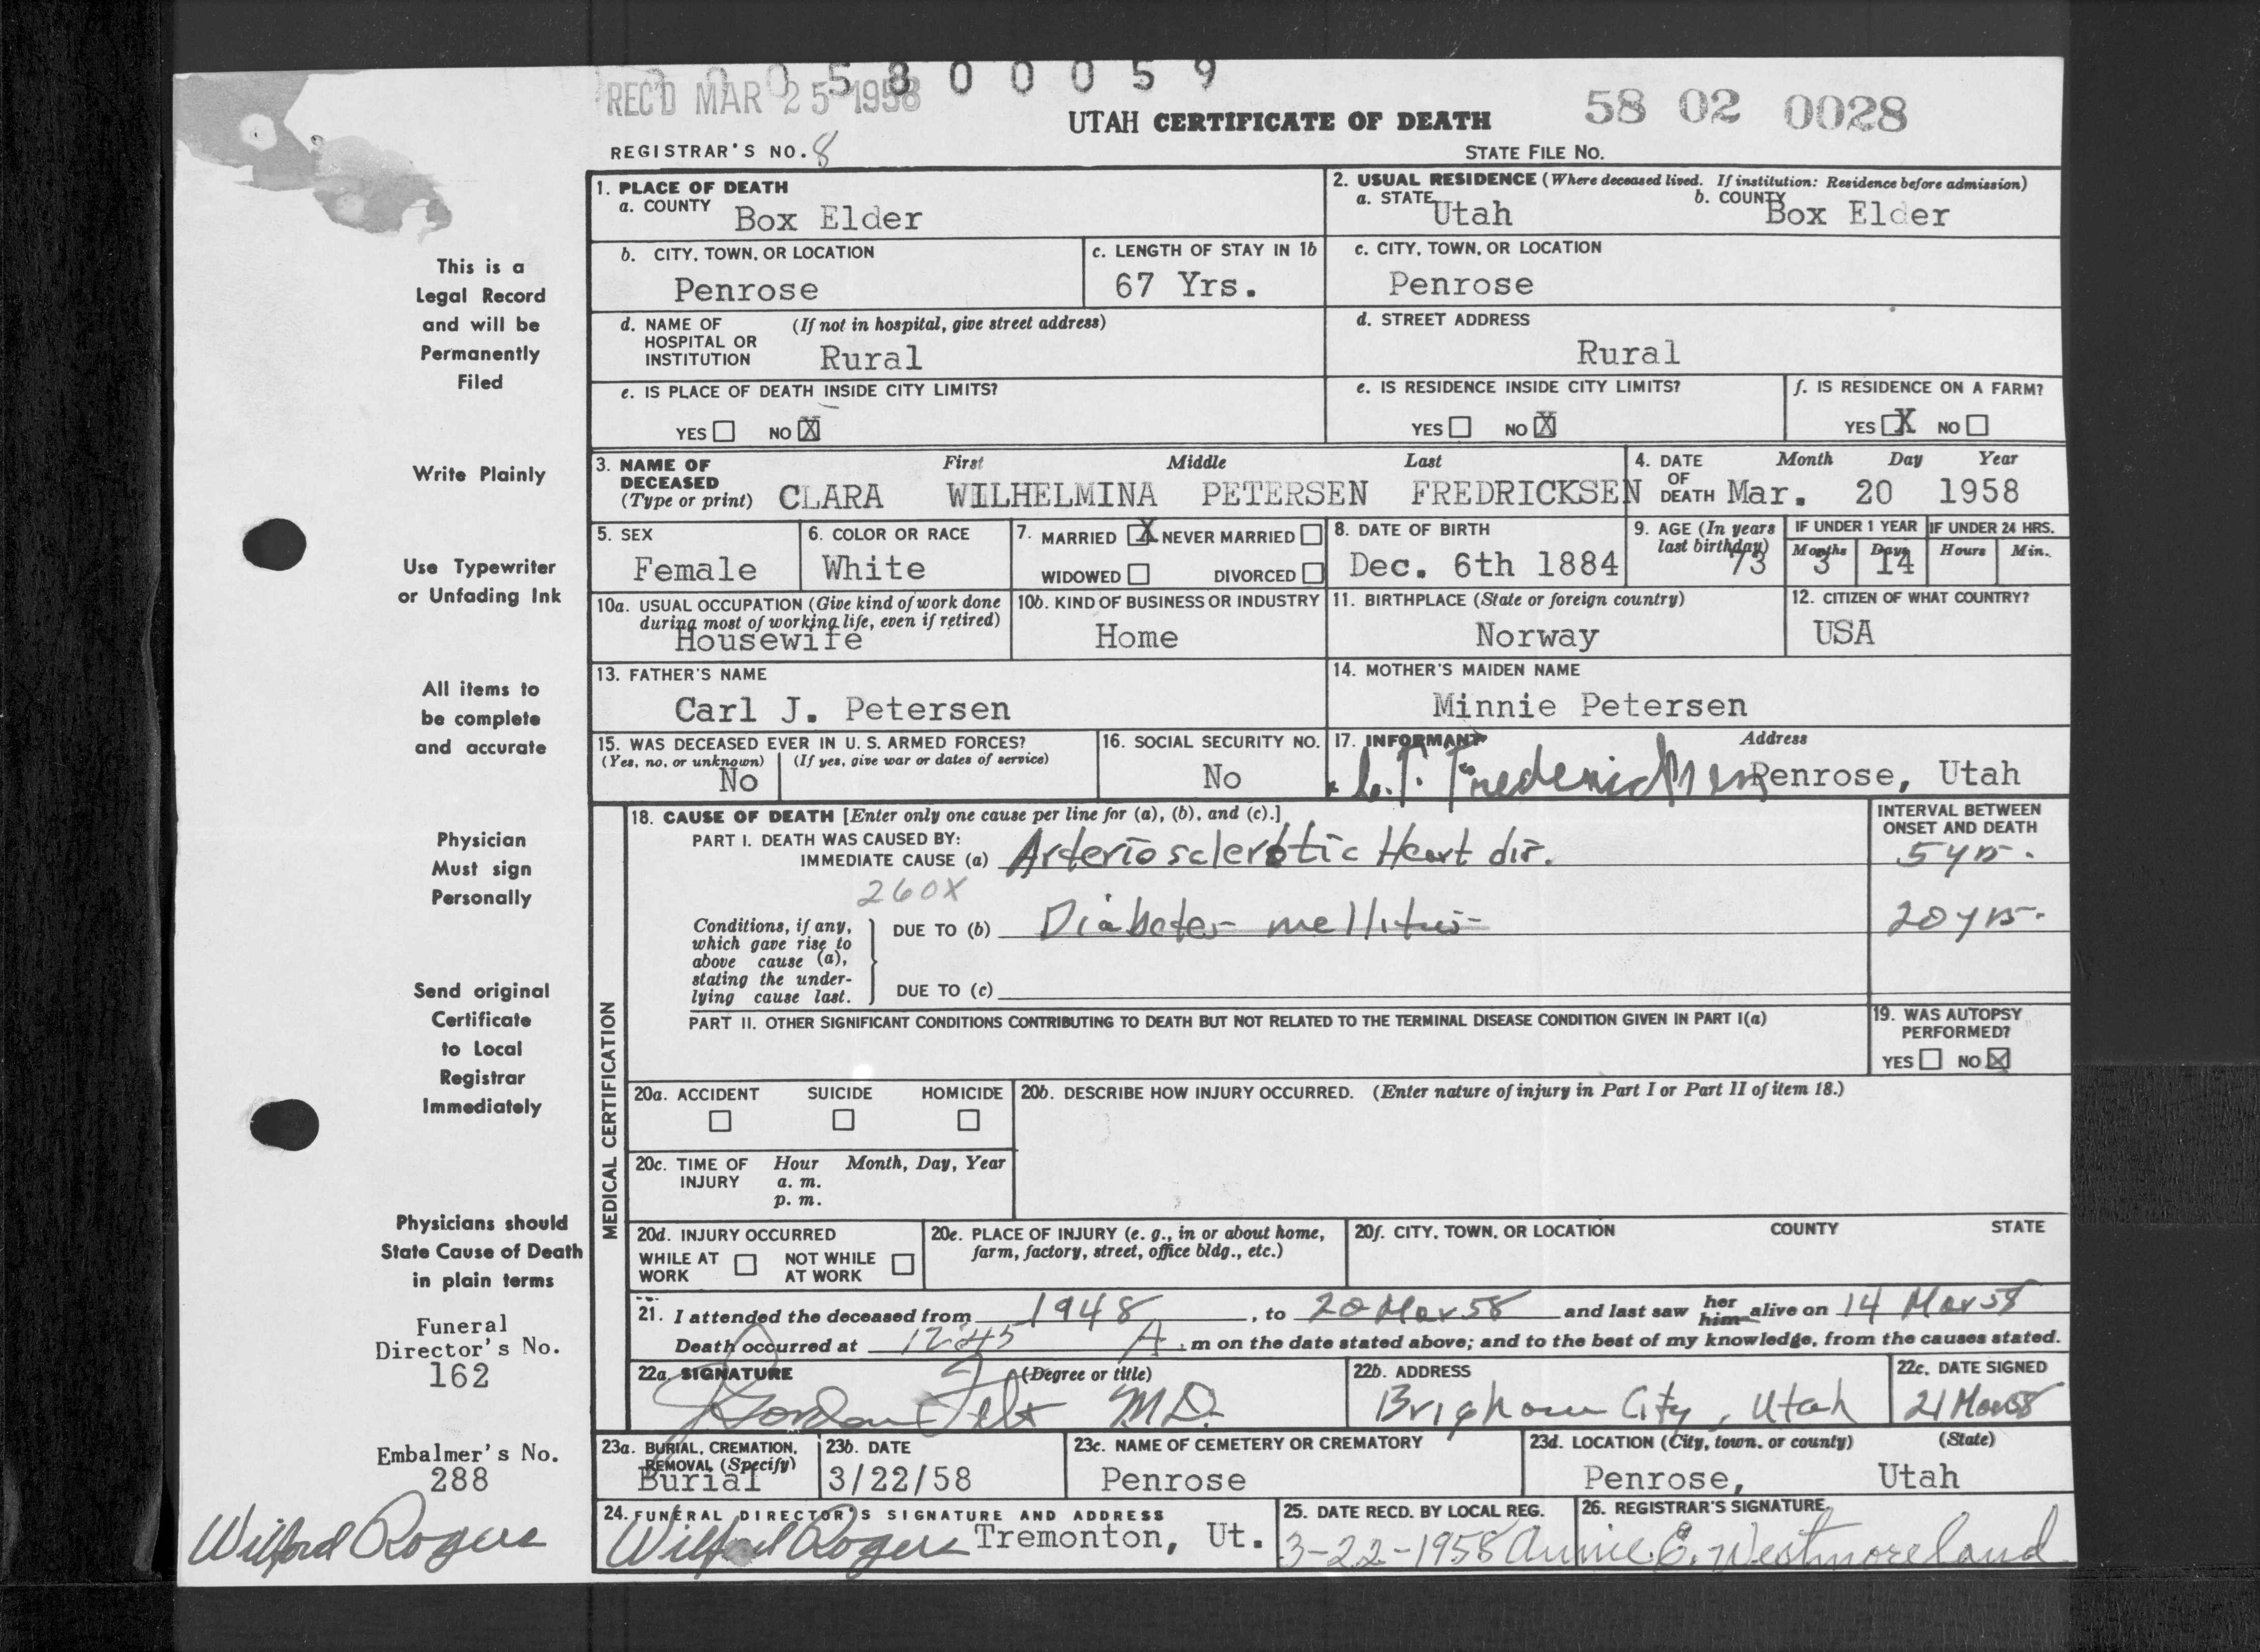 REC'D MAR 25 1958
0 0 0 5 8 0 0 0 5 9
UTAH CERTIFICATE OF DEATH
58 02 0028
REGISTRAR'S NO. 8
STATE FILE NO.
This is a
Legal Record
and will be
Permanently
Filed
Write Plainly
Use Typewriter
or Unfading Ink
All items to
be complete
and accurate
Physician
Must sign
Personally
Send original
Certificate
to Local
Registrar
Immediately
Physicians should
State Cause of Death
in plain terms
Funeral
Director's No.
162
Embalmer's No.
288
Wilford Rogers
1. PLACE OF DEATH
a. COUNTY Box Elder
2. USUAL RESIDENCE (Where deceased lived. If institution: Residence before admission)
a. STATE Utah b. COUNTY Box Elder
b. CITY, TOWN, OR LOCATION
Penrose
c. LENGTH OF STAY IN 1b
67 Yrs.
c. CITY, TOWN, OR LOCATION
Penrose
d. NAME OF (If not in hospital, give street address)
HOSPITAL OR
INSTITUTION Rural
d. STREET ADDRESS
Rural
e. IS PLACE OF DEATH INSIDE CITY LIMITS?
YES NO X
e. IS RESIDENCE INSIDE CITY LIMITS?
YES NO X
f. IS RESIDENCE ON A FARM?
YES X NO
3. NAME OF First Middle Last
DECEASED
(Type or print) CLARA WILHELMINA PETERSEN FREDRICKSEN
4. DATE Month Day Year
OF
DEATH Mar. 20 1958
5. SEX
Female
6. COLOR OR RACE
White
7. MARRIED X NEVER MARRIED
WIDOWED DIVORCED
8. DATE OF BIRTH
Dec. 6th 1884
9. AGE (In years
last birthday)
73
IF UNDER 1 YEAR
Months Days
3 14
IF UNDER 24 HRS.
Hours Min.
10a. USUAL OCCUPATION (Give kind of work done
during most of working life, even if retired)
Housewife
10b. KIND OF BUSINESS OR INDUSTRY
Home
11. BIRTHPLACE (State or foreign country)
Norway
12. CITIZEN OF WHAT COUNTRY?
USA
13. FATHER'S NAME
Carl J. Petersen
14. MOTHER'S MAIDEN NAME
Minnie Petersen
15. WAS DECEASED EVER IN U. S. ARMED FORCES?
(Yes, no, or unknown) (If yes, give war or dates of service)
No
16. SOCIAL SECURITY NO.
No
17. INFORMANT Address
Fredericksen Penrose, Utah
MEDICAL CERTIFICATION
18. CAUSE OF DEATH [Enter only one cause per line for (a), (b), and (c).]
INTERVAL BETWEEN
ONSET AND DEATH
PART I. DEATH WAS CAUSED BY:
IMMEDIATE CAUSE (a) Arteriosclerotic Heart dis. 5 yrs.
260X
Conditions, if any,
which gave rise to
above cause (a),
stating the under-
lying cause last.
DUE TO (b) Diabetes mellitus 20 yrs.
DUE TO (c)
PART II. OTHER SIGNIFICANT CONDITIONS CONTRIBUTING TO DEATH BUT NOT RELATED TO THE TERMINAL DISEASE CONDITION GIVEN IN PART I(a)
19. WAS AUTOPSY
PERFORMED?
YES NO X
20a. ACCIDENT SUICIDE HOMICIDE
20b. DESCRIBE HOW INJURY OCCURRED. (Enter nature of injury in Part I or Part II of item 18.)
20c. TIME OF Hour Month, Day, Year
INJURY a. m.
p. m.
20d. INJURY OCCURRED
WHILE AT NOT WHILE
WORK AT WORK
20e. PLACE OF INJURY (e. g., in or about home,
farm, factory, street, office bldg., etc.)
20f. CITY, TOWN, OR LOCATION COUNTY STATE
21. I attended the deceased from 1948, to 20 Mar 58 and last saw her him alive on 14 Mar 58
Death occurred at 12:45 A. m on the date stated above; and to the best of my knowledge, from the causes stated.
22a. SIGNATURE (Degree or title)
Gordon Felt M.D.
22b. ADDRESS
Brigham City, Utah
22c. DATE SIGNED
21 Mar 58
23a. BURIAL, CREMATION,
REMOVAL (Specify)
Burial
23b. DATE
3/22/58
23c. NAME OF CEMETERY OR CREMATORY
Penrose
23d. LOCATION (City, town, or county) (State)
Penrose, Utah
24. FUNERAL DIRECTOR'S SIGNATURE AND ADDRESS
Wilford Rogers Tremonton, Ut.
25. DATE RECD. BY LOCAL REG.
3-22-1958
26. REGISTRAR'S SIGNATURE
Annie E. Westmoreland